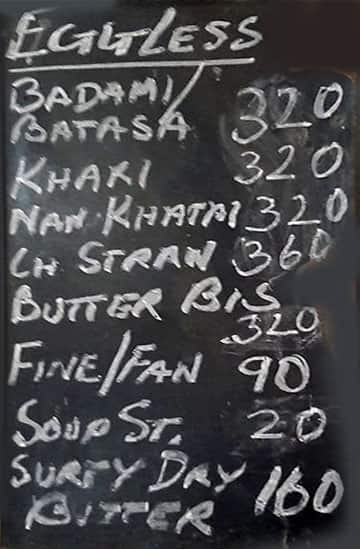 EGGLESS
BADAMI/ 320
BATASA
KHARI 320
NAN-KHATAI 320
CH STRAW 360
BUTTER BIS
320
FINE/FAN 90
SOUP ST. 20
SURTY DRY 160
BUTTER